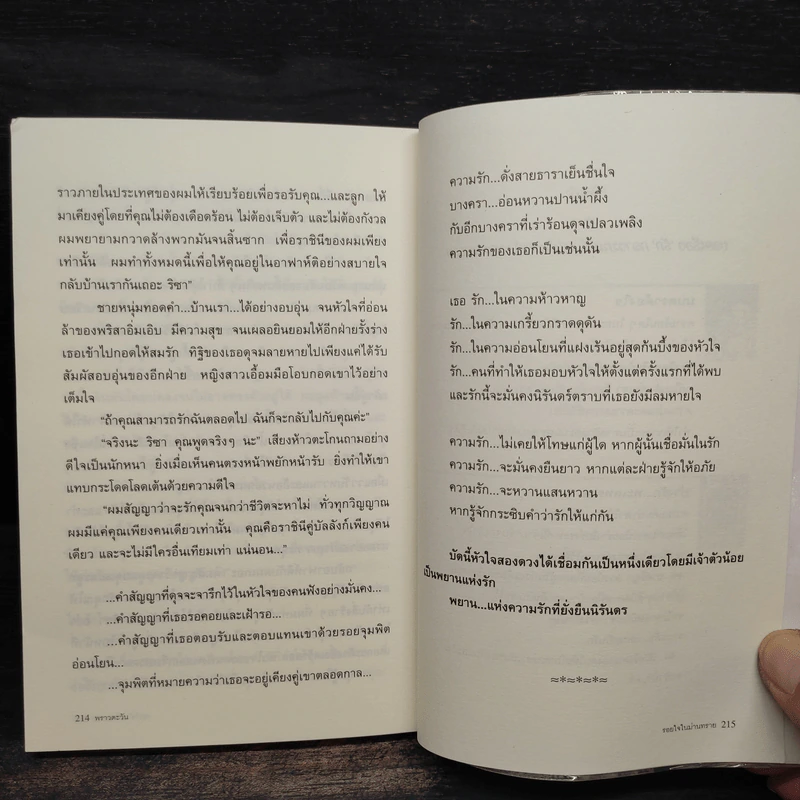 ราวภายในประเทศของผมให้เรียบร้อยเพื่อรอรับคุณ...และลูก ให้
มาเคียงคู่โดยที่คุณไม่ต้องเดือดร้อน ไม่ต้องเจ็บตัว และไม่ต้องกังวล
ผมพยายามกวาดล้างพวกมันจนสิ้นซาก เพื่อราชินีของผมเพียง
เท่านั้น ผมทำทั้งหมดนี้เพื่อให้คุณอยู่ในอาฟาห์ดิอย่างสบายใจ
กลับบ้านเรากันเถอะ ริซา”
ชายหนุ่มทอดคำ...บ้านเรา...ได้อย่างอบอุ่น จนหัวใจที่อ่อน
ล้าของพริสาอิ่มเอิบ มีความสุข จนเผลอยินยอมให้อีกฝ่ายรั้งร่าง
เธอเข้าไปกอดให้สมรัก ทิฐิของเธอดุจมลายหายไปเพียงแค่ได้รับ
สัมผัสอบอุ่นของอีกฝ่าย หญิงสาวเอื้อมมือโอบกอดเขาไว้อย่าง
เต็มใจ
“ถ้าคุณสามารถรักฉันตลอดไป ฉันก็จะกลับไปกับคุณค่ะ”
“จริงนะ ริซา คุณพูดจริงๆ นะ” เสียงห้าวตะโกนถามอย่าง
ดีใจเป็นนักหนา ยิ่งเมื่อเห็นคนตรงหน้าพยักหน้ารับ ยิ่งทำให้เขา
แทบกระโดดโลดเต้นด้วยความดีใจ
“ผมสัญญาว่าจะรักคุณจนกว่าชีวิตจะหาไม่ ทั่วทุกวิญญาณ
ผมมีแค่คุณเพียงคนเดียวเท่านั้น คุณคือราชินีคู่บัลลังก์เพียงคน
เดียว และจะไม่มีใครอื่นเทียมเท่า แน่นอน...”
...คำสัญญาที่ดุจจะจารึกไว้ในหัวใจของคนฟังอย่างมั่นคง...
...คำสัญญาที่เธอรอคอยและเฝ้ารอ...
...คำสัญญาที่เธอตอบรับและตอบแทนเขาด้วยรอยจุมพิต
อ่อนโยน...
...จุมพิตที่หมายความว่าเธอจะอยู่เคียงคู่เขาตลอดกาล...
214 พราวตะวัน
ความรัก...ดั่งสายธาราเย็นชื่นใจ
บางครา...อ่อนหวานปานน้ำผึ้ง
กับอีกบางคราที่เร่าร้อนดุจเปลวเพลิง
ความรักของเธอก็เป็นเช่นนั้น
เธอ รัก...ในความห้าวหาญ
รัก...ในความเกรี้ยวกราดดุดัน
รัก...ในความอ่อนโยนที่แฝงเร้นอยู่สุดก้นบึ้งของหัวใจ
รัก...คนที่ทำให้เธอมอบหัวใจให้ตั้งแต่ครั้งแรกที่ได้พบ
และรักนี้จะมั่นคงนิรันดร์ตราบที่เธอยังมีลมหายใจ
ความรัก...ไม่เคยให้โทษแก่ผู้ใด หากผู้นั้นเชื่อมั่นในรัก
ความรัก...จะมั่นคงยืนยาว หากแต่ละฝ่ายรู้จักให้อภัย
ความรัก...จะหวานแสนหวาน
หากรู้จักกระซิบคำว่ารักให้แก่กัน
บัดนี้หัวใจสองดวงได้เชื่อมกันเป็นหนึ่งเดียวโดยมีเจ้าตัวน้อย
เป็นพยานแห่งรัก
พยาน...แห่งความรักที่ยั่งยืนนิรันดร
≈*≈*≈*≈
รอยใจในม่านทราย 215